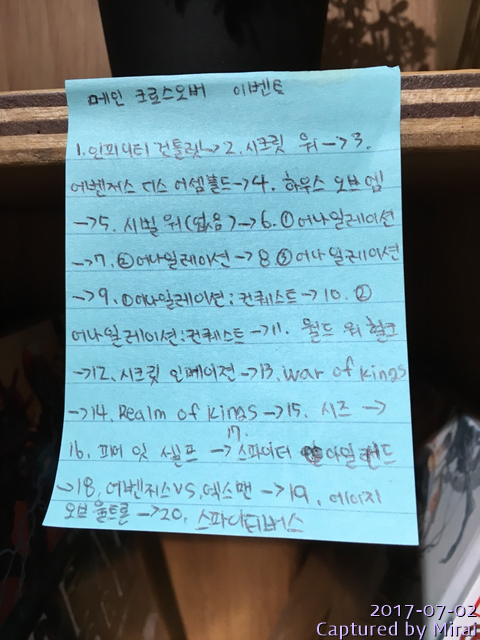 메인 크로스오버 이벤트
1. 인피니티 건틀릿→2. 시크릿 워→3.
어벤저스 디스 어셈블드→4. 하우스 오브 엠
→5. 시빌 워(없음)→6. ①어나일레이션
→7. ②어나일레이션→8 ③어나일레이션
→9. ①어나일레이션:컨퀘스트→10. ②
어나일레이션:컨퀘스트→11. 월드 워 헐크
→12. 시크릿 인베이젼→13. war of kings
→14. Realm of kings→15. 시즈→
16. 피어 잇 셀프→17. 스파이더 아일랜드
→18. 어벤저스 VS. 엑스맨→19. 에이지
오브 울트론→20. 스파이더버스
2017-07-02
Captured by Mirai